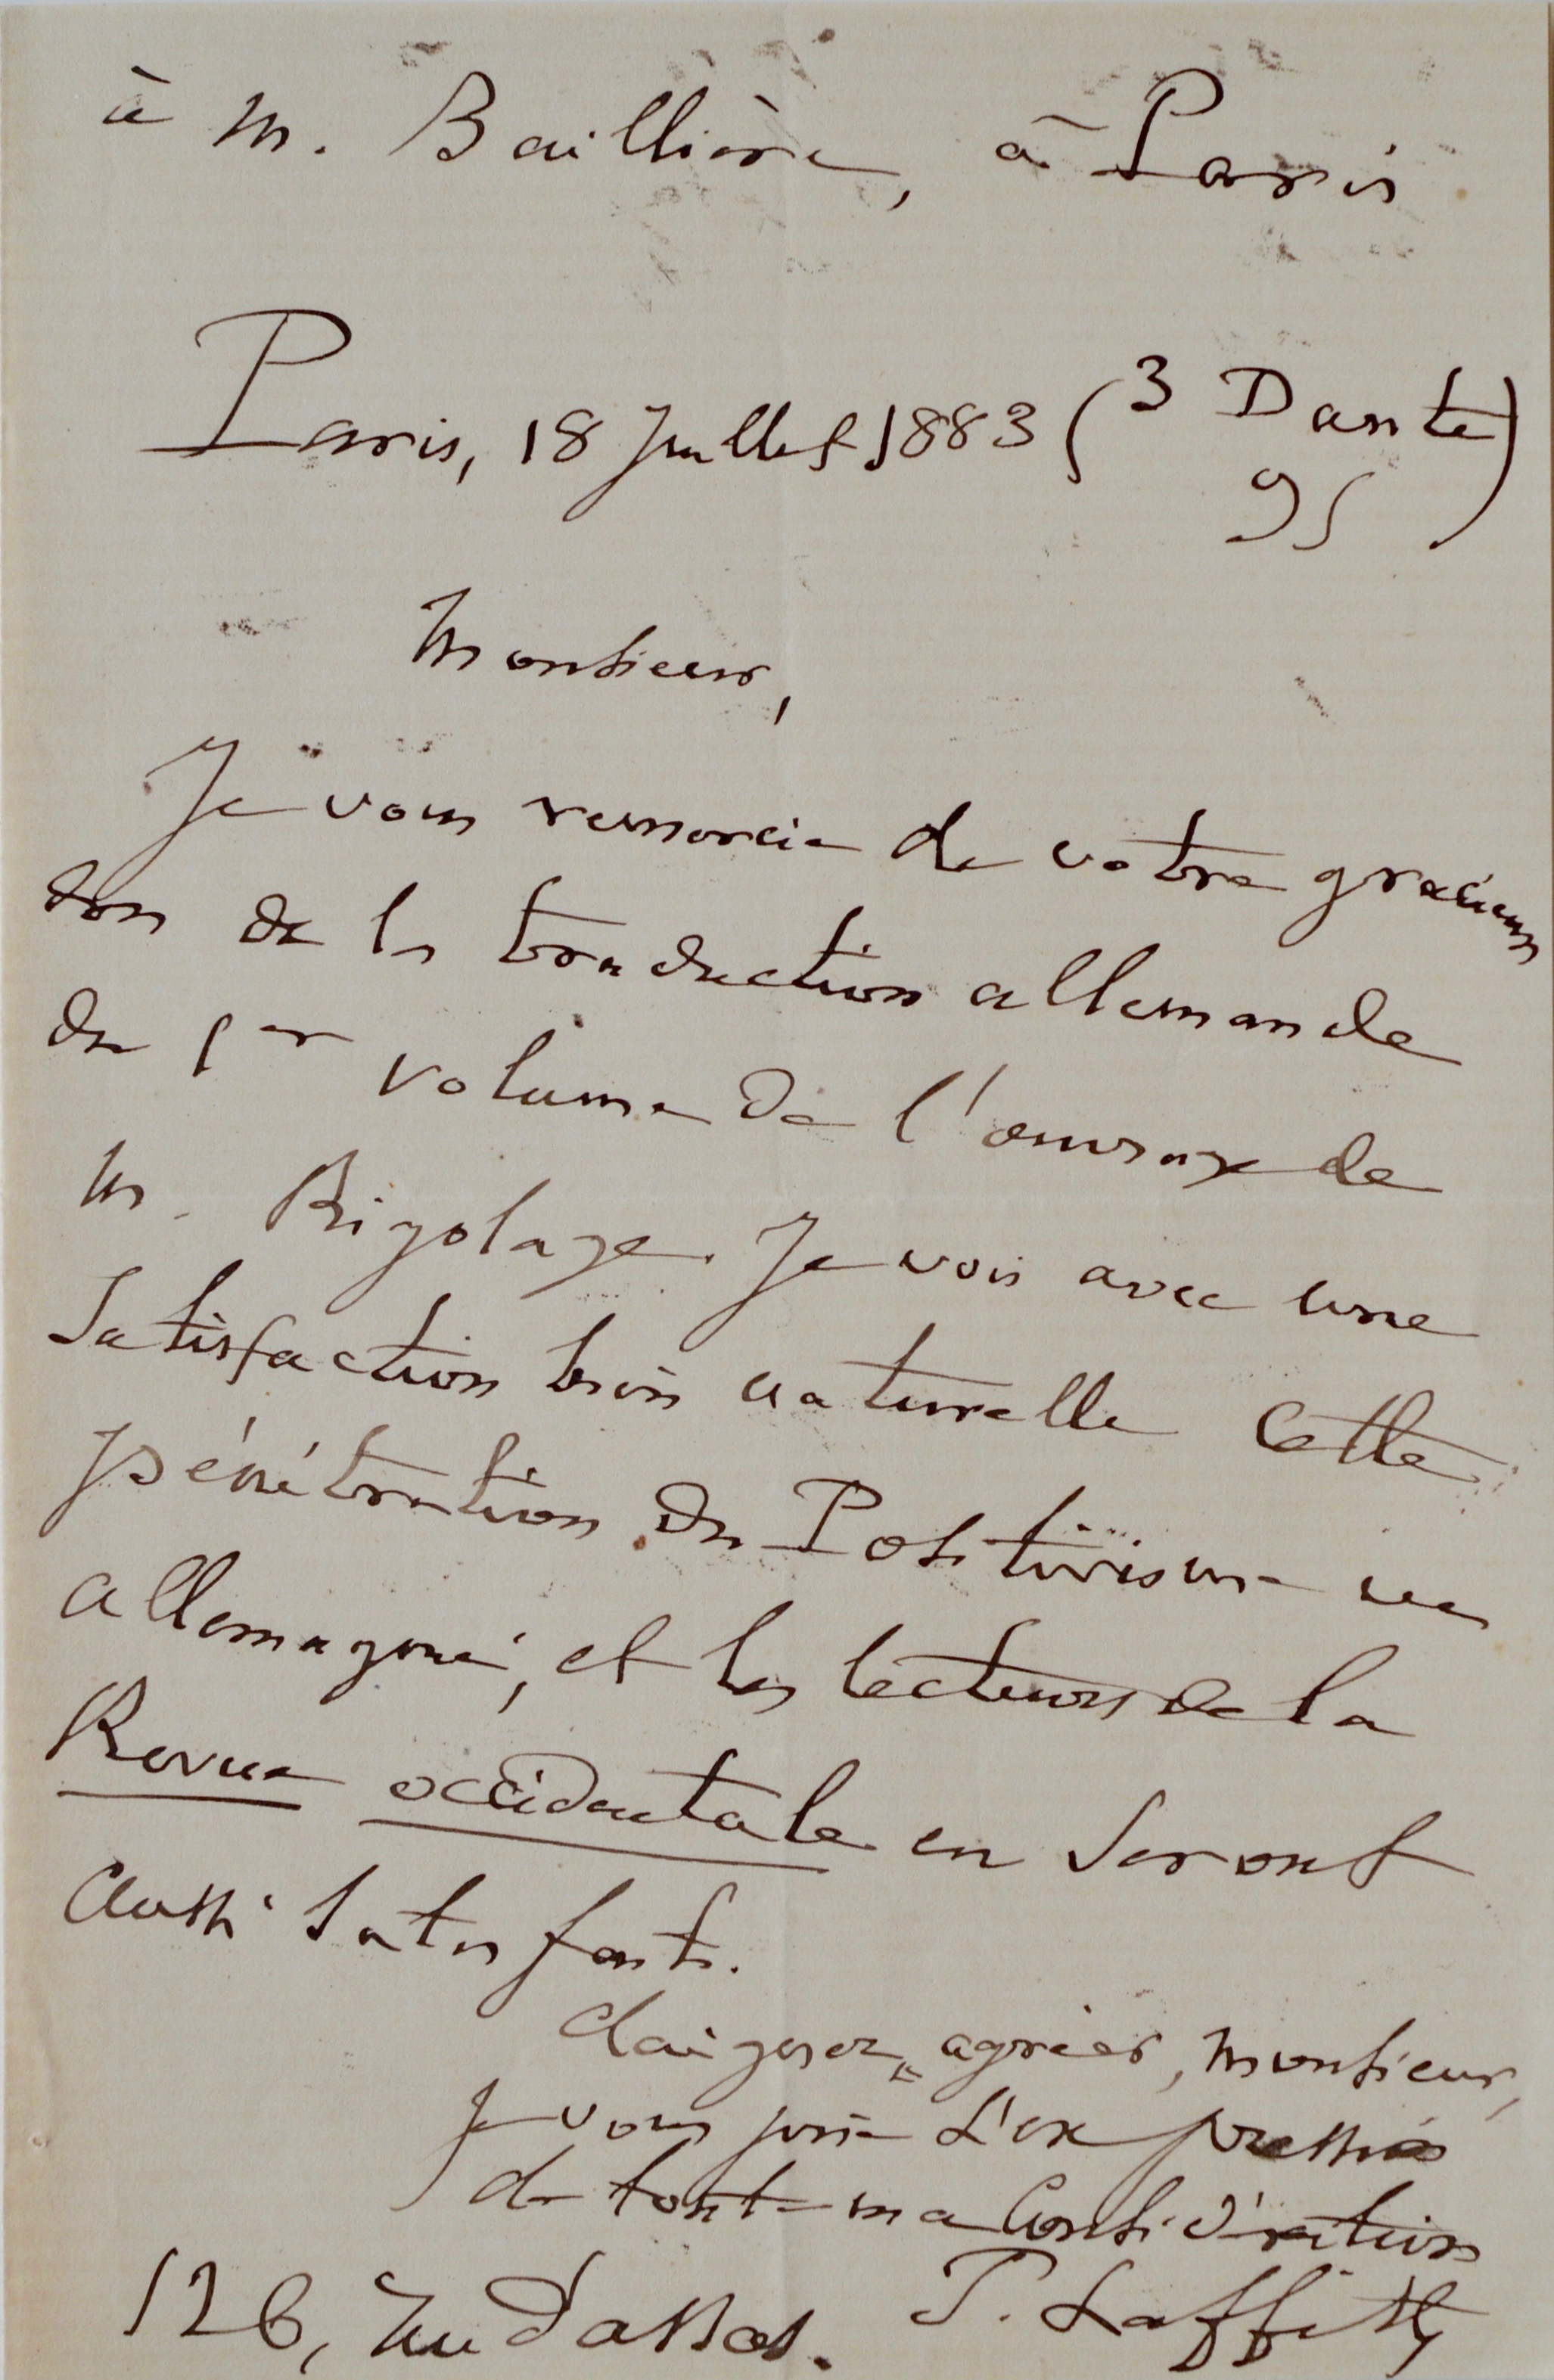 à M. Baillière, à Paris
Paris, 18 Juillet 1883 (3 Dante)
95
Monsieur,
Je vous remercie de votre gracieux
don de la traduction allemande
du 1er volume de l'ouvrage de
M. Rigolage. Je vois avec une
satisfaction bien naturelle cette
pénétration du Positivisme en
allemagne, et les lecteurs de la
Revue occidentale en seront
aussi satisfaits.
daignez agréer, Monsieur,
Je vous prie l'expression
de toute ma Considération
126, rue d'assas. P. Laffitte